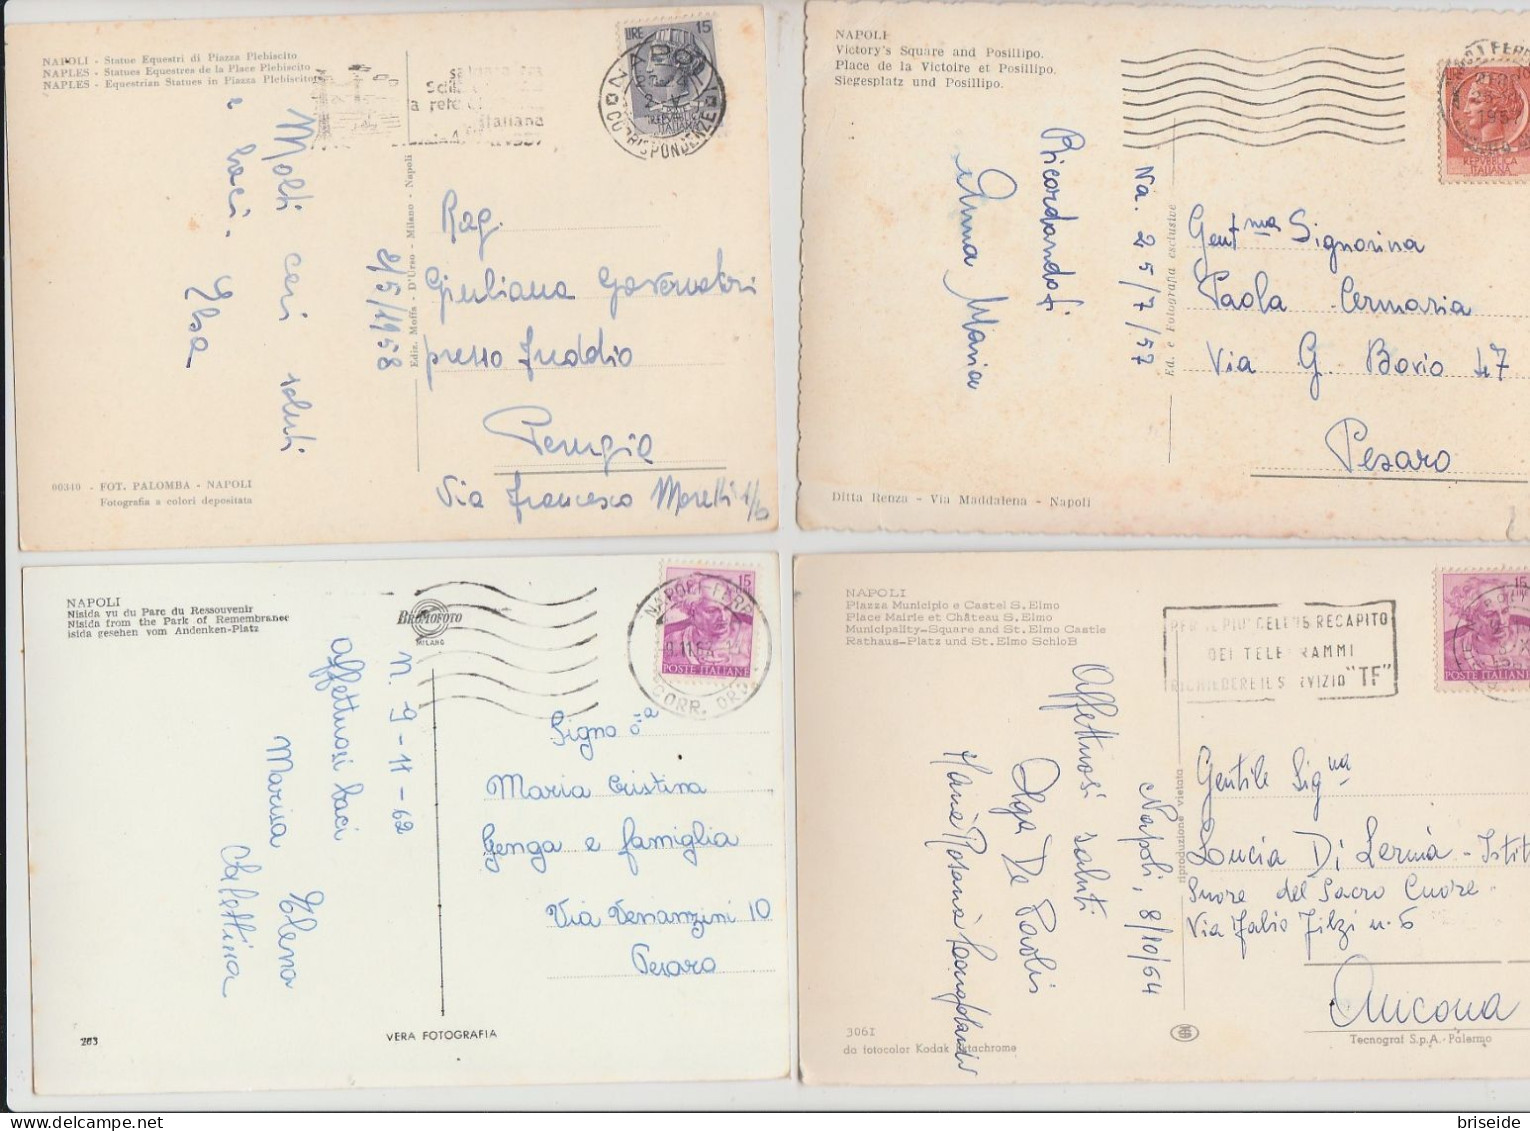 NAPOLI - Statue Equestri di Piazza Plebiscito
NAPLES - Statues Equestres de la Place Plebiscito
NAPLES - Equestrian Statues in Piazza Plebiscito
LIRE 15
REPVBBLICA
ITALIANA
CORRISPONDENZE
italiana
Molti cari saluti
e baci.
Ilsa
2/5/1958
Ediz. Moffa - D'Urso - Milano - Napoli
Rag.
Giuliana Governatori
presso Freddio
Perugia
Via Francesco Moretti 1/b
00340 - FOT. PALOMBA - NAPOLI
Fotografia a colori depositata
NAPOLI
Victory's Square and Posillipo.
Place de la Victoire et Posillipo.
Siegesplatz und Posillipo.
1957
REPVBBLICA
ITALIANA
Ricordandoti
Anna Maria
Na. 25/7/57
Ed. e Fotografia esclusive
Gentma Signorina
Paola Cermaria
Via G. Bovio 47
Pesaro
Ditta Renza - Via Maddalena - Napoli
NAPOLI
Nisida vu du Parc du Ressouvenir
Nisida from the Park of Remembrance
isida gesehen vom Andenken-Platz
BROMOFOTO
MILANO
15
POSTE ITALIANE
NAPOLI-FERR
CORR. ORD.
N. 9-11-62
Affettuosi baci
Marisa Elena
Signora
Maria Cristina
Genga e famiglia
Via Venanzini 10
Pesaro
203
VERA FOTOGRAFIA
NAPOLI
Piazza Municipio e Castel S. Elmo
Place Mairie et Château S. Elmo
Municipality-Square and St. Elmo Castle
Rathaus-Platz und St. Elmo Schloß
PER IL PIU' CELERE RECAPITO
DEI TELEGRAMMI
RICHIEDERE IL SERVIZIO "TF"
15
POSTE ITALIANE
Affettuosi saluti
Olga De Paolis
Maria Rosaria
Napoli, 8/10/64
riproduzione vietata
Gentile Signa
Lucia Di Lerma - Istit
Suore del Sacro Cuore
Via Fabio Filzi n. 6
Ancona
3061
da fotocolor Kodak Ektachrome
Tecnograf S.p.A. - Palermo
briseide